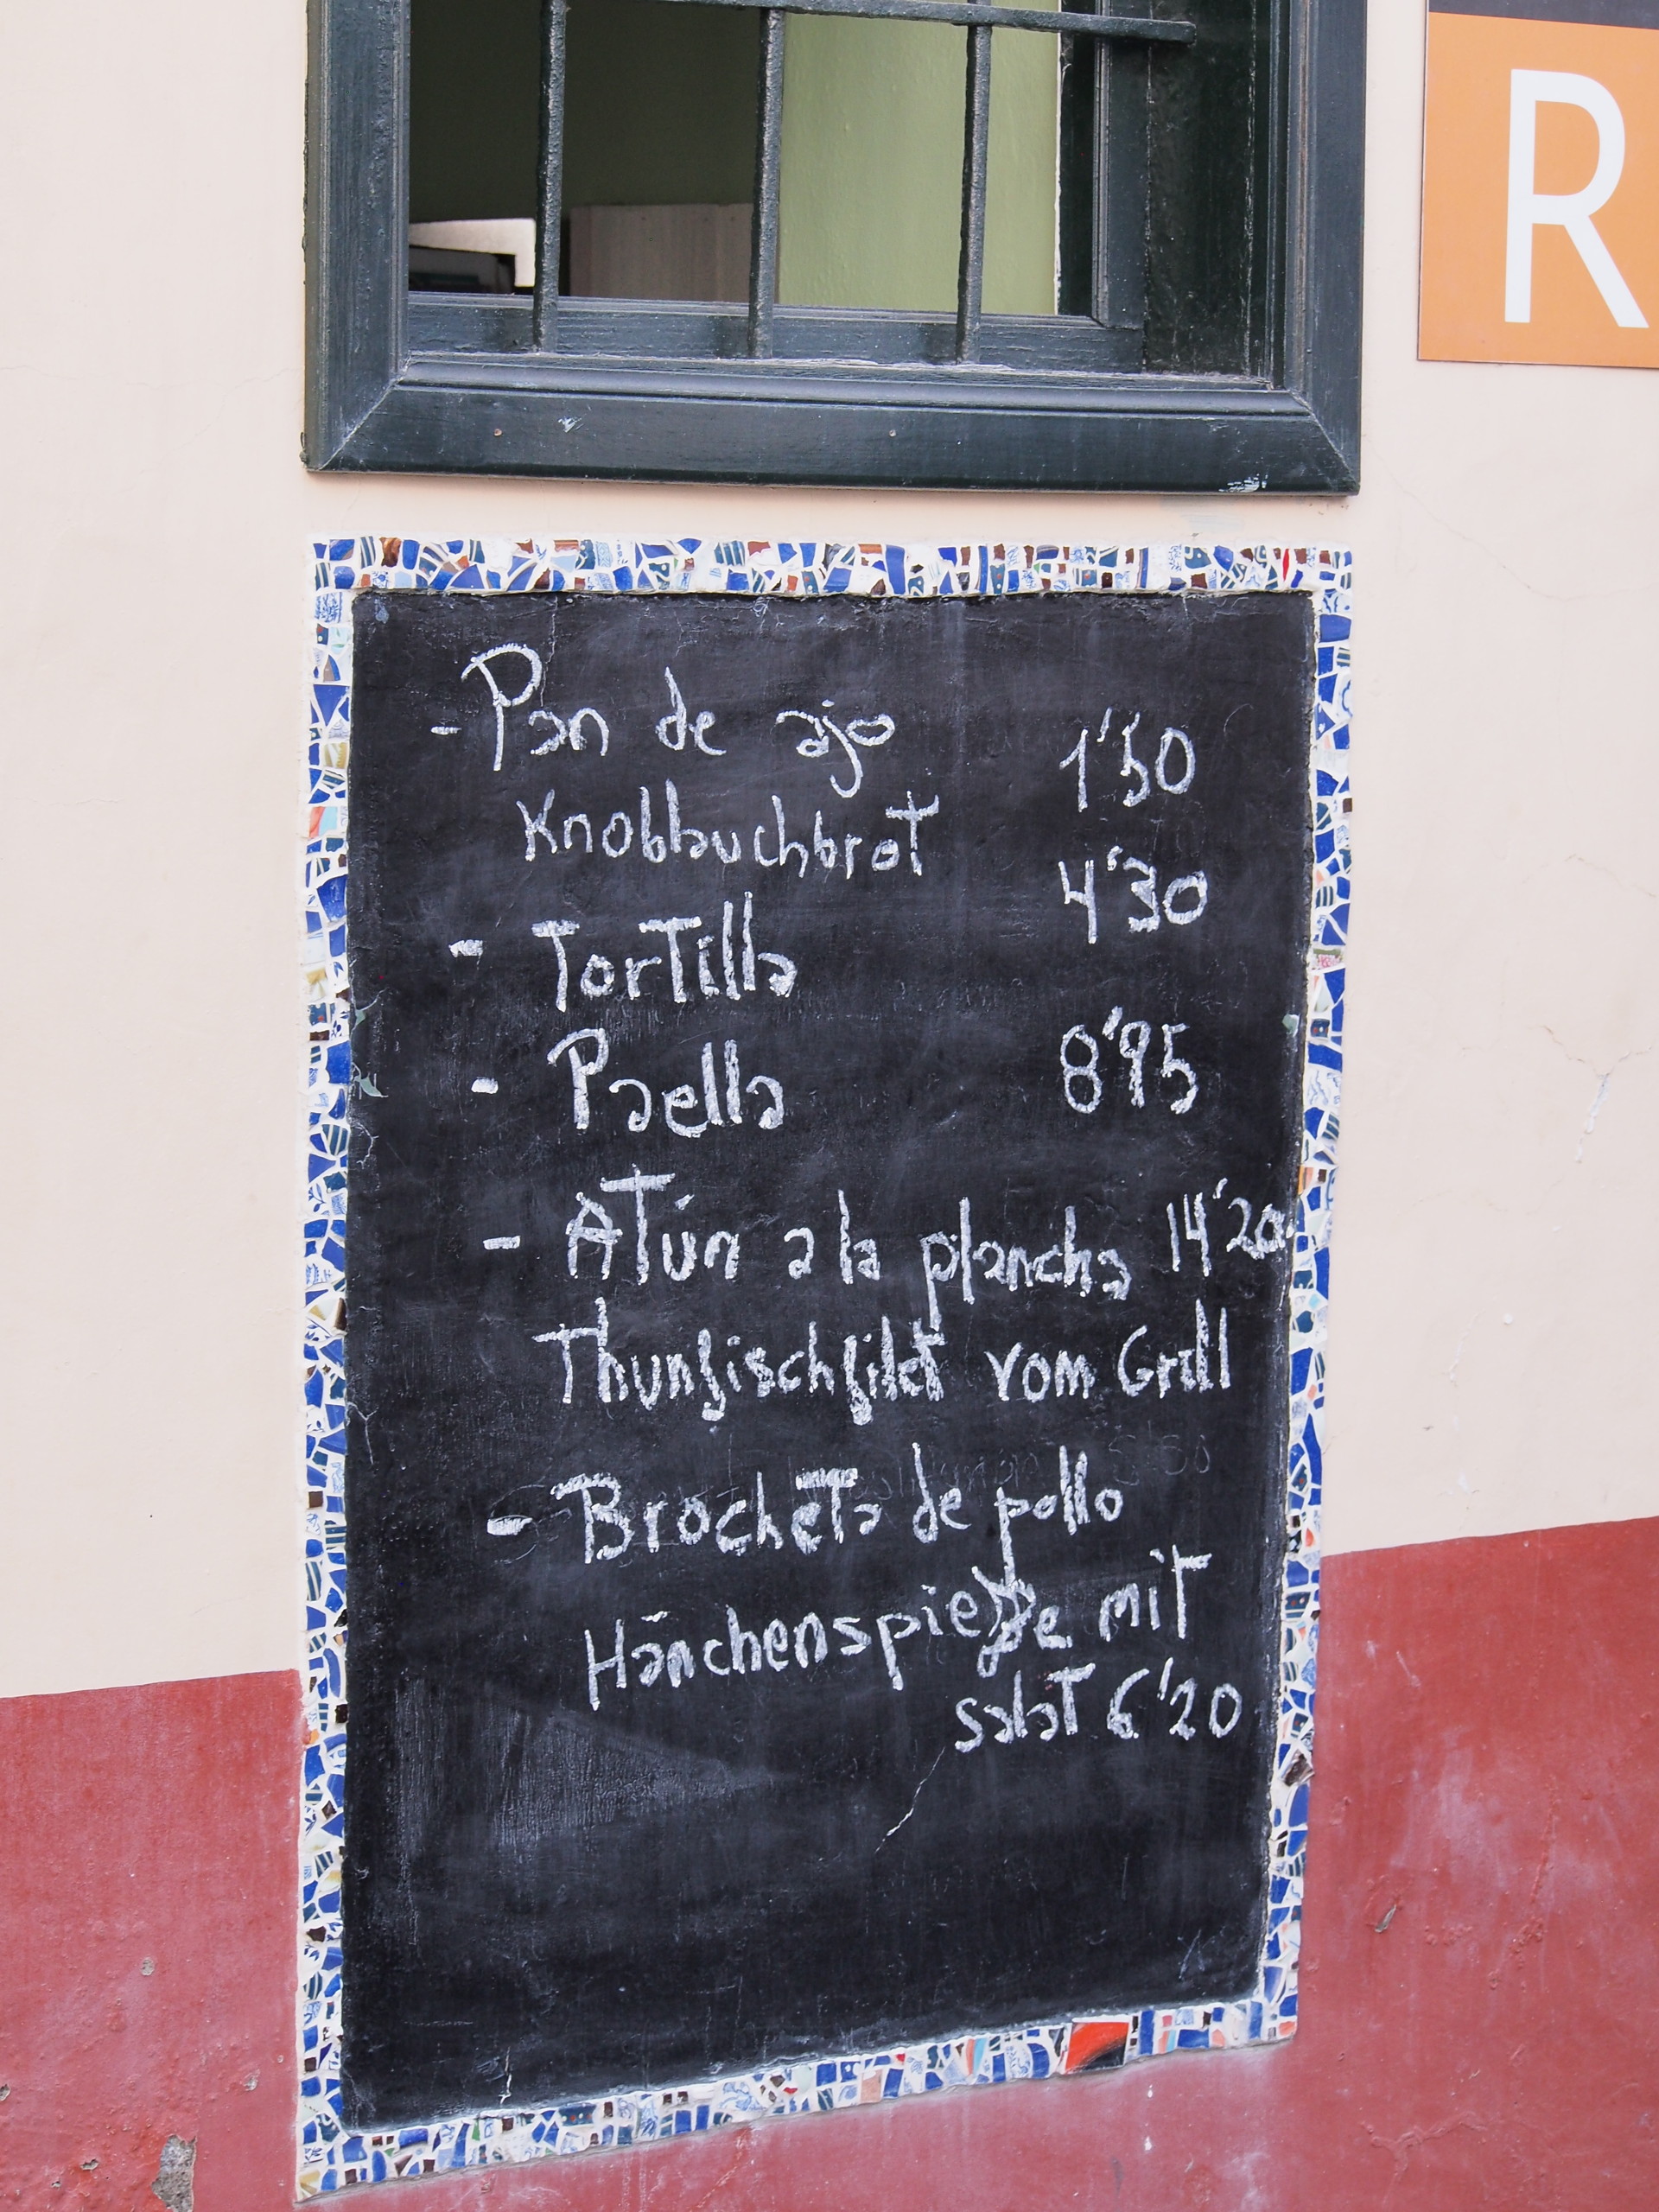 R
- Pan de ajo 1'50
Knoblauchbrot
- Tortilla 4'30
- Paella 8'95
- Atún a la plancha 14'20
Thunfischfilet vom Grill
- Brocheta de pollo
Hänchenspieße mit
salat 6'20